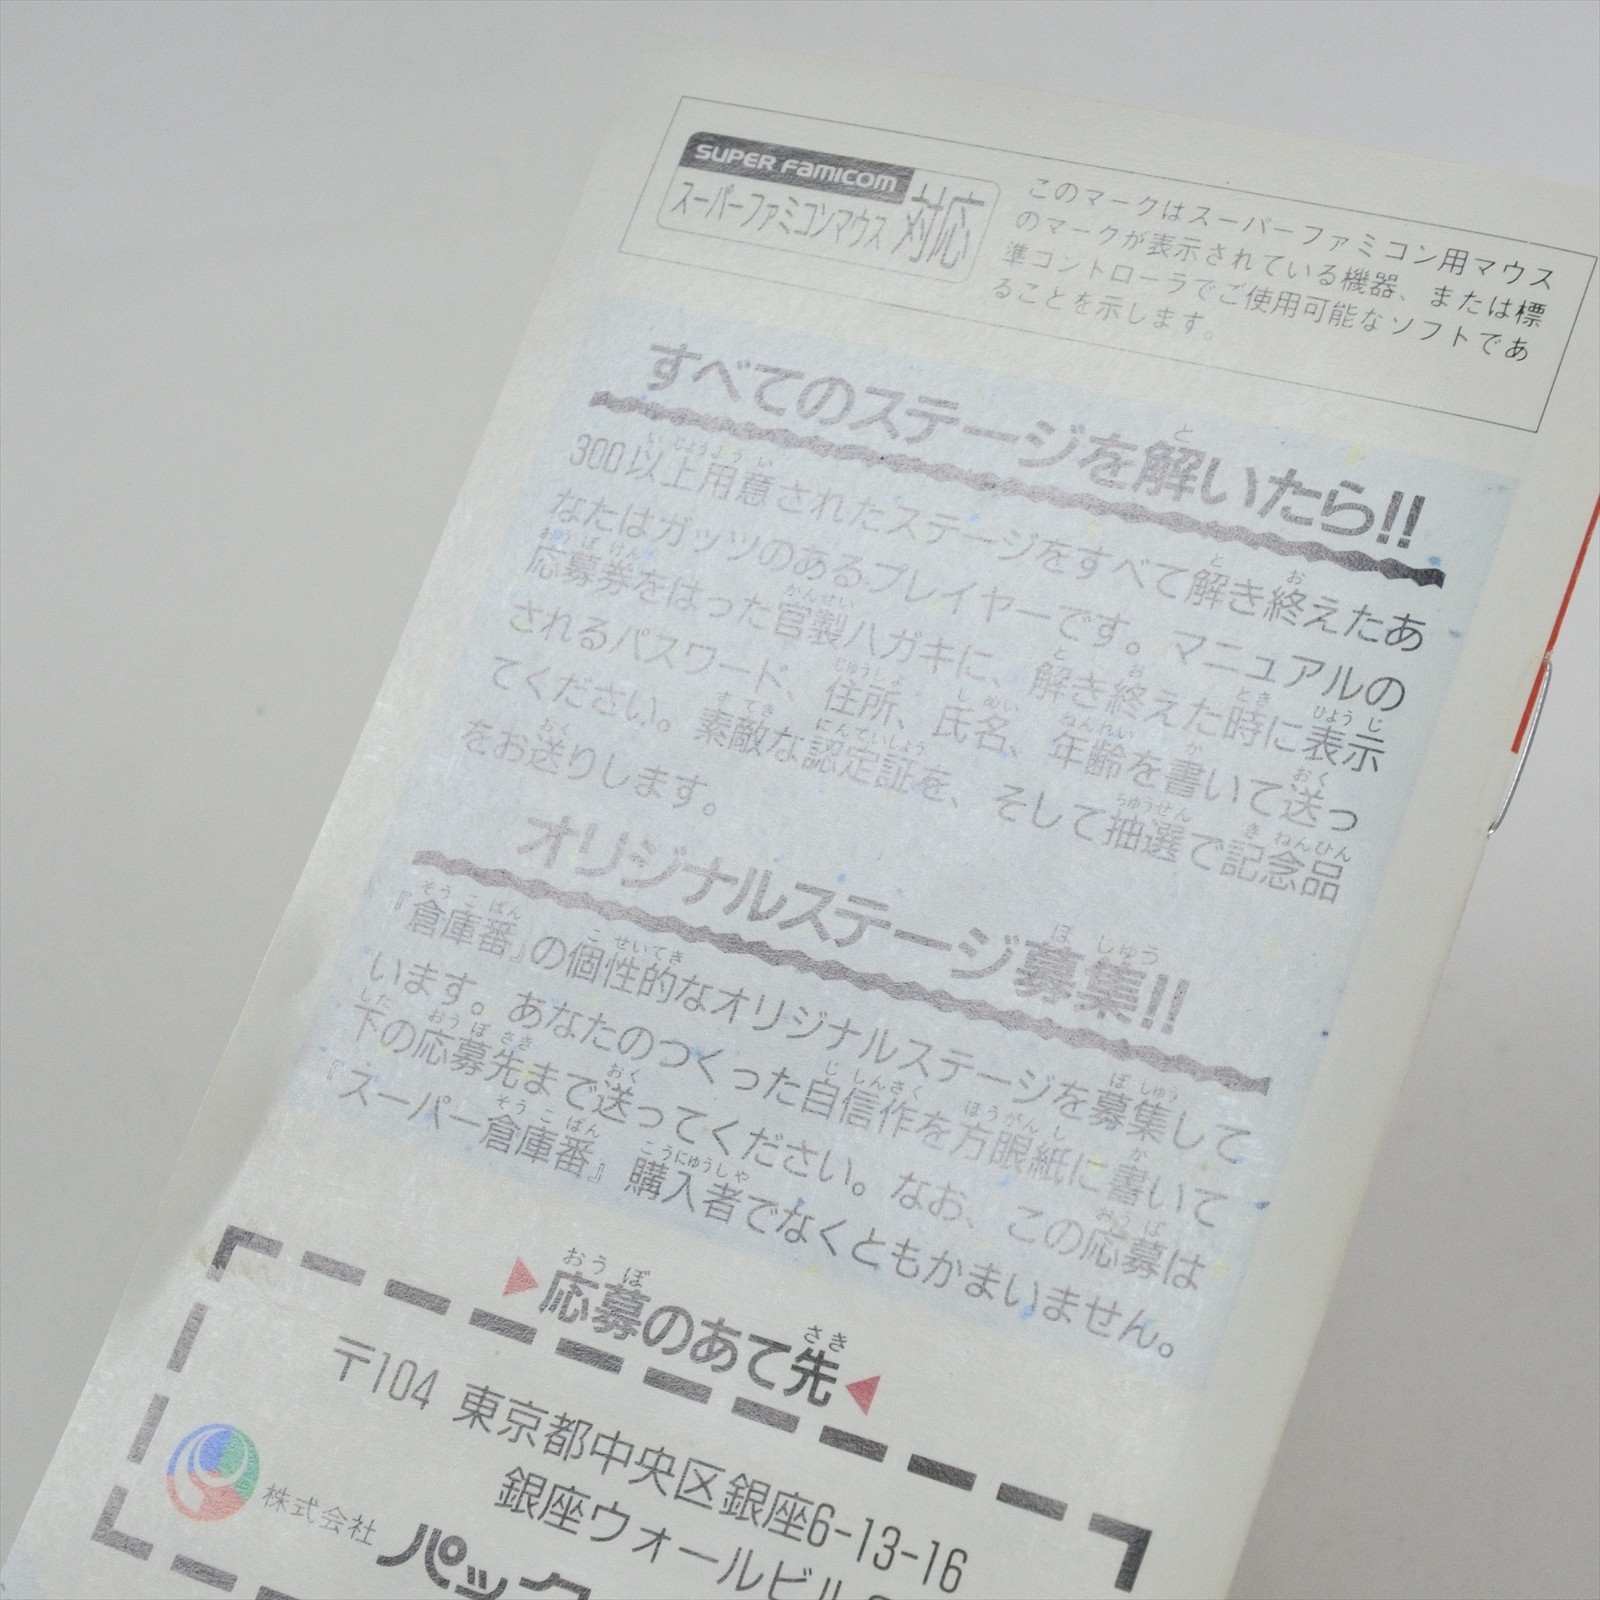 SUPER FAMICOM
スーパーファミコンマウス対応
このマークはスーパーファミコン用マウス
のマークが表示されている機器、または標
準コントローラでご使用可能なソフトであ
ることを示します。
すべてのステージを解いたら!!
300以上用意されたステージをすべて解き終えたあ
なたはガッツのあるプレイヤーです。マニュアルの
応募券をはった官製ハガキに、解き終えた時に表示
されるパスワード、住所、氏名、年齢を書いて送っ
てください。素敵な認定証を、そして抽選で記念品
をお送りします。
オリジナルステージ募集!!
『倉庫番』の個性的なオリジナルステージを募集して
います。あなたのつくった自信作を方眼紙に書いて
下の応募先まで送ってください。なお、この応募は
『スーパー倉庫番』購入者でなくともかまいません。
▶応募のあて先◀
〒104 東京都中央区銀座6-13-16
銀座ウォールビル
株式会社 パック